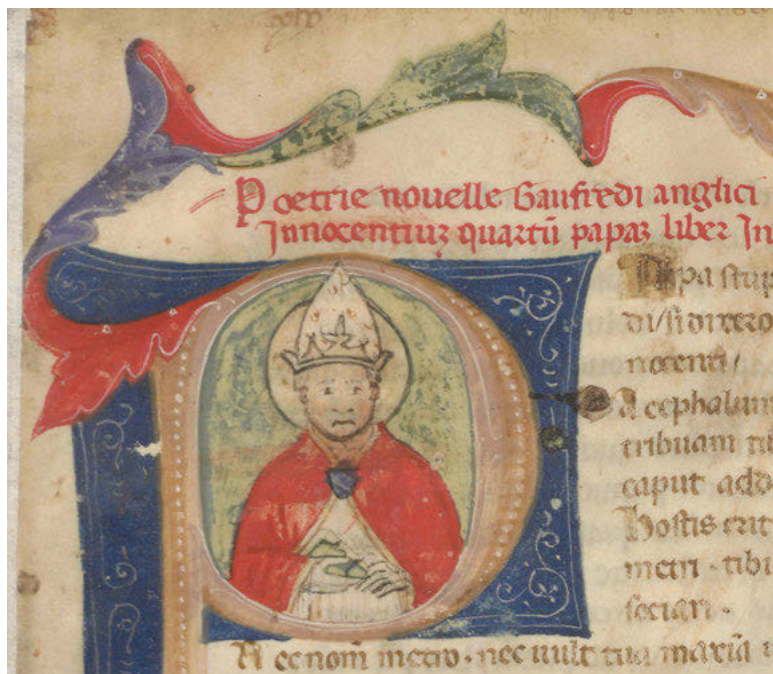 Poetrie nouelle Gaufredi anglici
Innocentiuz quartū papaz liber In
Papa stup
di / si dixero
nocenti /
A cephalum
tribuam ti
caput adde
hostis erit
metri · tibi
sociari ·
N ec nom̄ metro · nec uult tua maxīa